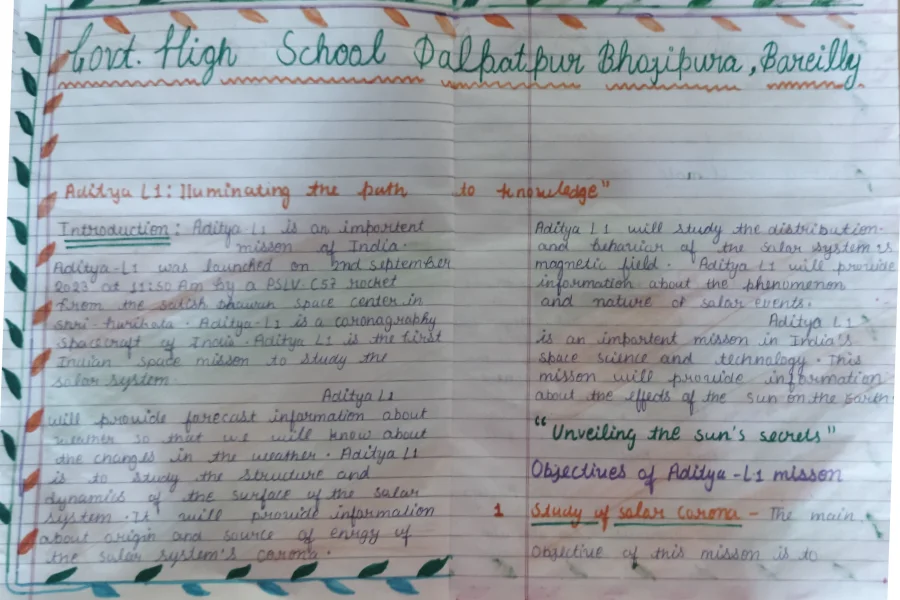 Govt. High School Dalpatpur Bhojipura, Bareilly
Aditya L1: Iluminating the path to knowledge"
Introduction : Aditya-L1 is an importent
misson of India.
Aditya-L1 was launched on 2nd september
2023 at 11:50 Am by a PSLV-C57 rocket
from the satish dhawan space center in
shri-harikota. Aditya-L1 is a coronagraphy
spacecraft of India. Aditya-L1 is the first
Indian space misson to study the
solar system.
Aditya L1
will provide forecast information about
weather so that we will know about
the changes in the weather. Aditya L1
is to study the structure and
dynamics of the surface of the solar
system. It will provide information
about origin and source of energy of
the solar system's corona.
Aditya L1 will study the distribution
and behavior of the solar system's
magnetic field. Aditya L1 will provide
information about the phenomenon
and nature of solar events.
Aditya L1
is an importent misson in India's
space science and technology. This
misson will provide information
about the effects of the Sun on the Earth
"Unveiling the sun's secrets"
Objectives of Aditya-L1 misson
1 Study of solar corona - The main
objective of this misson is to